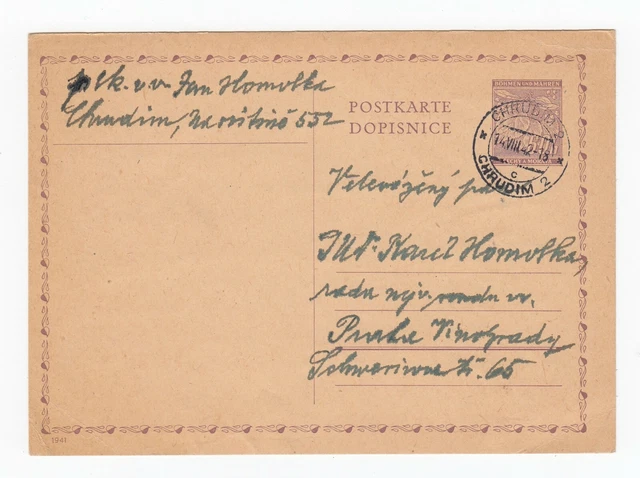 plk. v v. Jan Homolka
Chrudim, Na ostřině 552
BÖHMEN UND MÄHREN
POSTKARTE
DOPISNICE
CHRUDIM 2
14.VIII.42-18
c
CHRUDIM 2
Velevážený pan
JUDr. Karel Homolka,
rada nejv. soudu vv.
Praha Vinohrady
Schwerinova tř. 65
1941